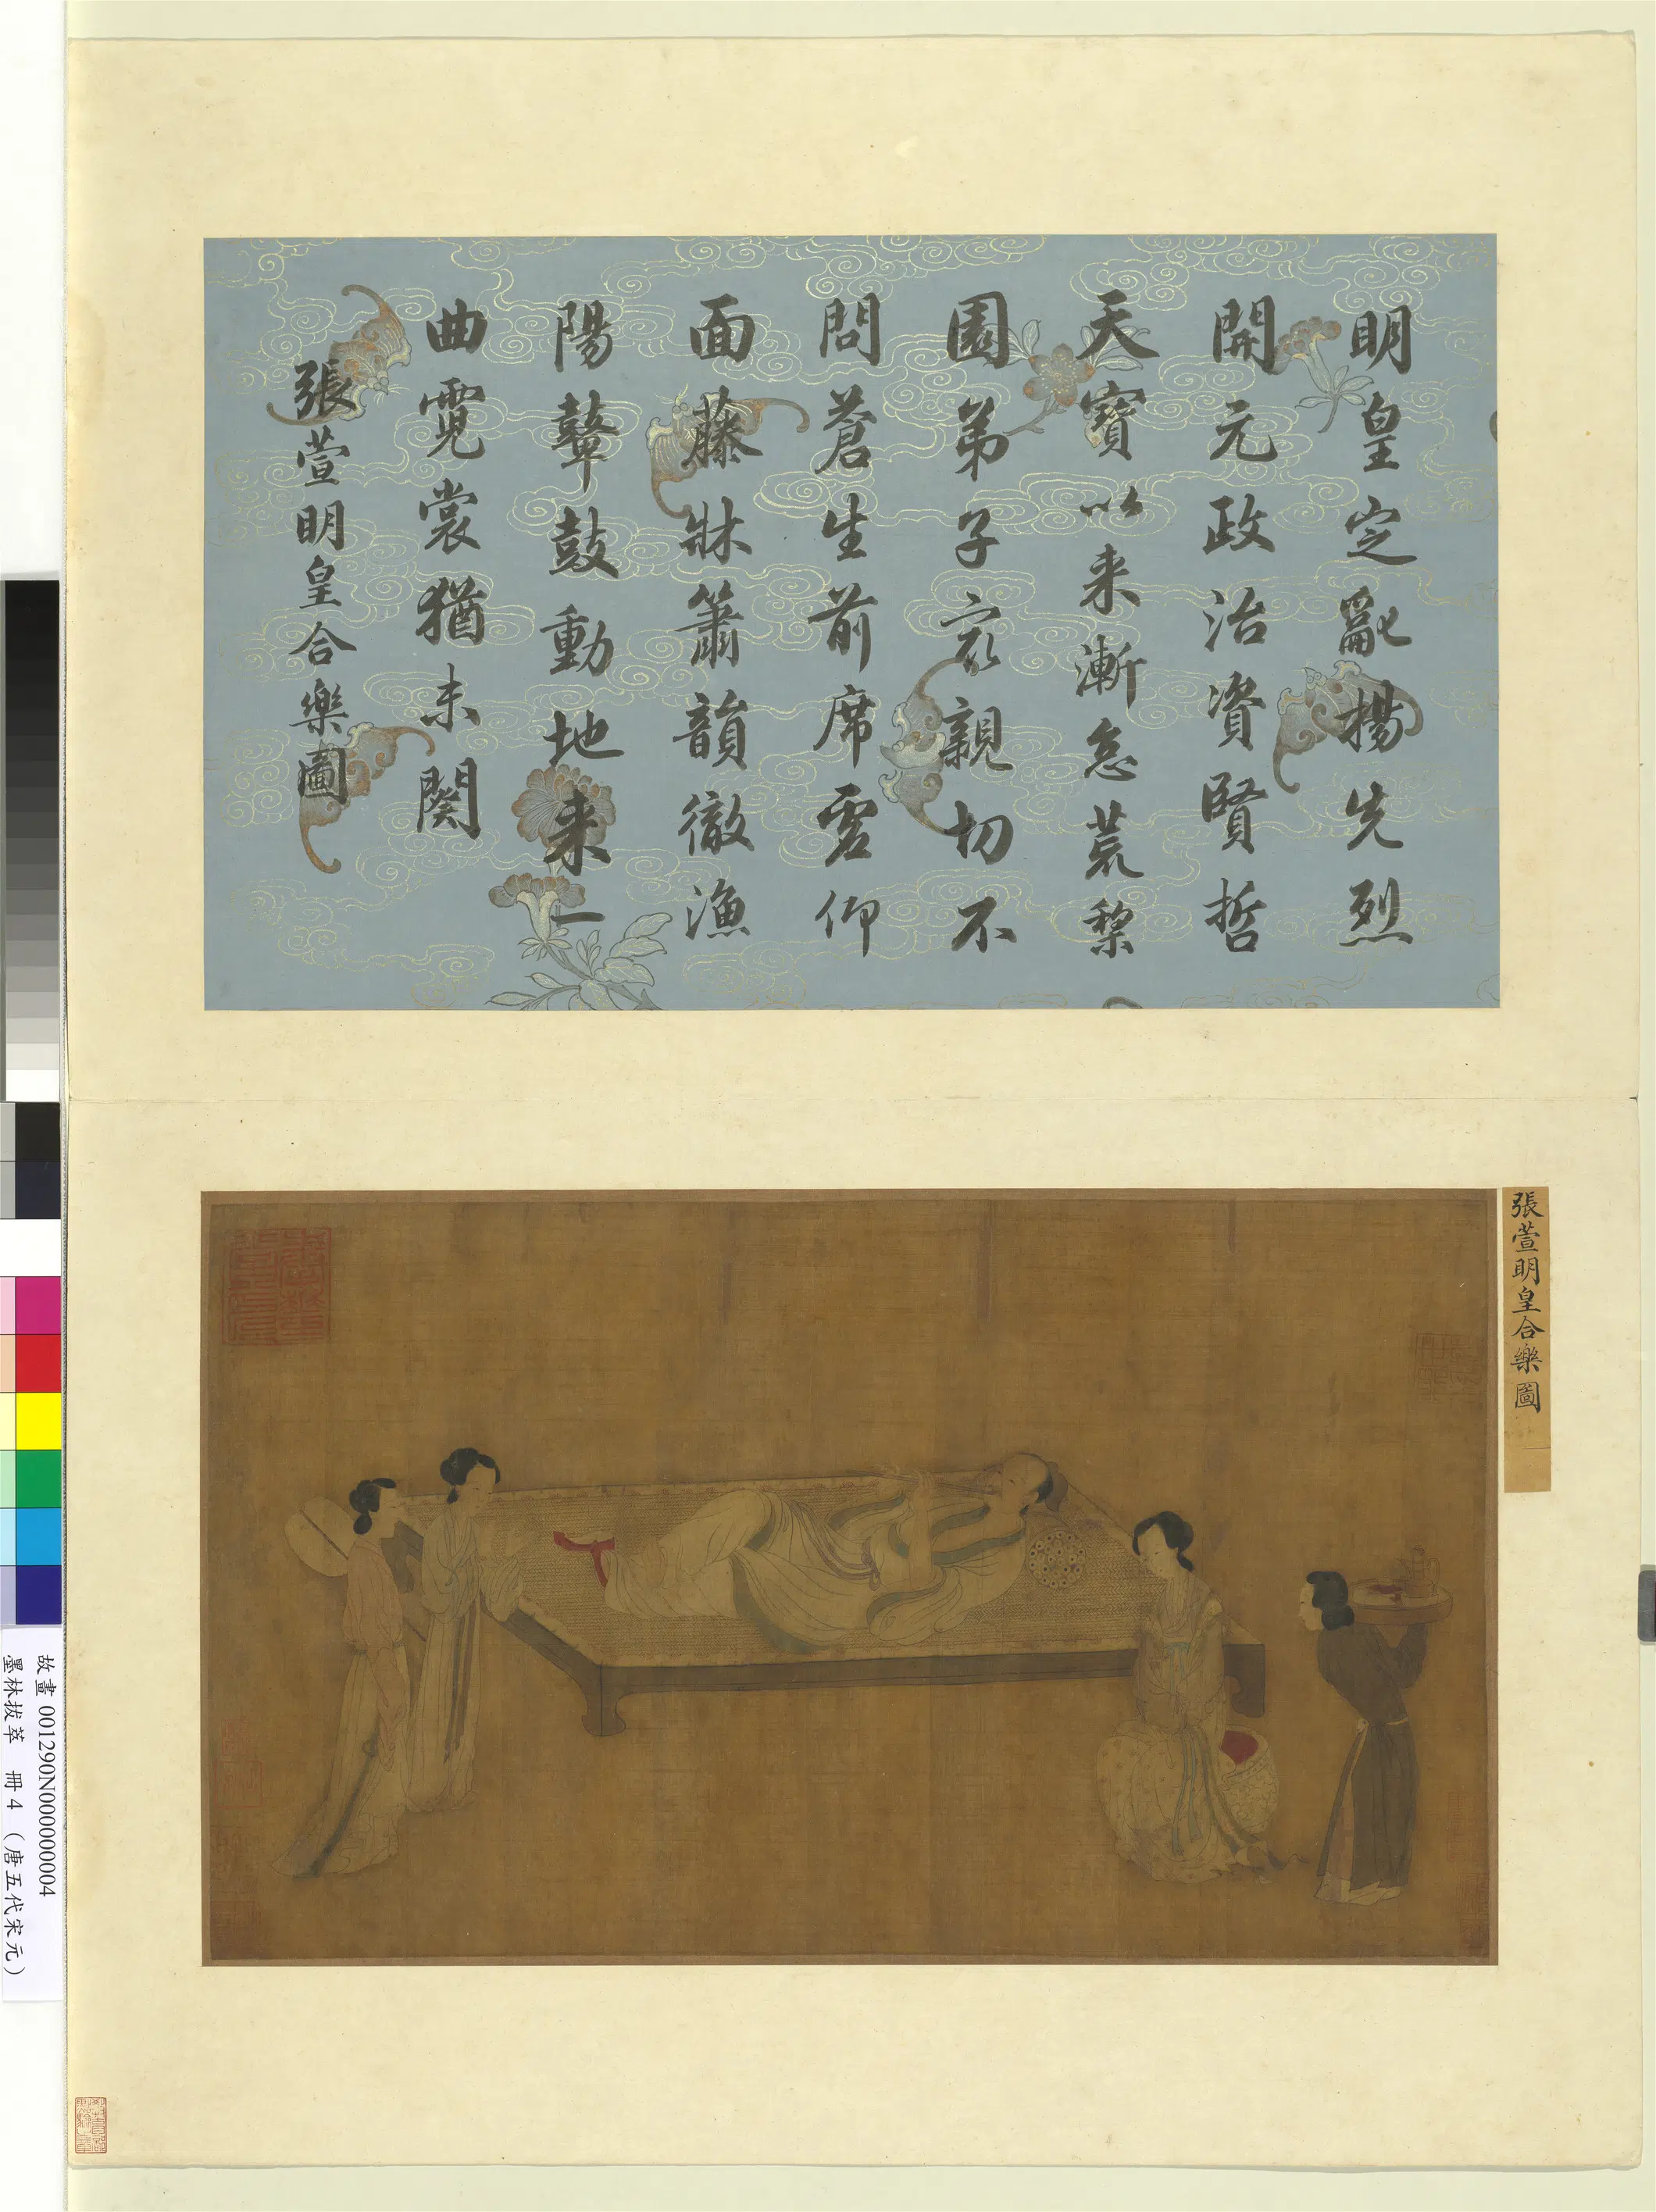 明皇定亂揚先烈
開元政治資賢哲
天寶以来漸怠荒
梨園弟子寂親切
不問蒼生前席虛
仰面藤牀簫韻徹
漁陽鼙鼓動地来
一曲霓裳猶未闋
張萱明皇合樂圖
張萱明皇合樂圖
故畫 001290N000000004
墨林拔萃 冊4 (唐五代宋元)